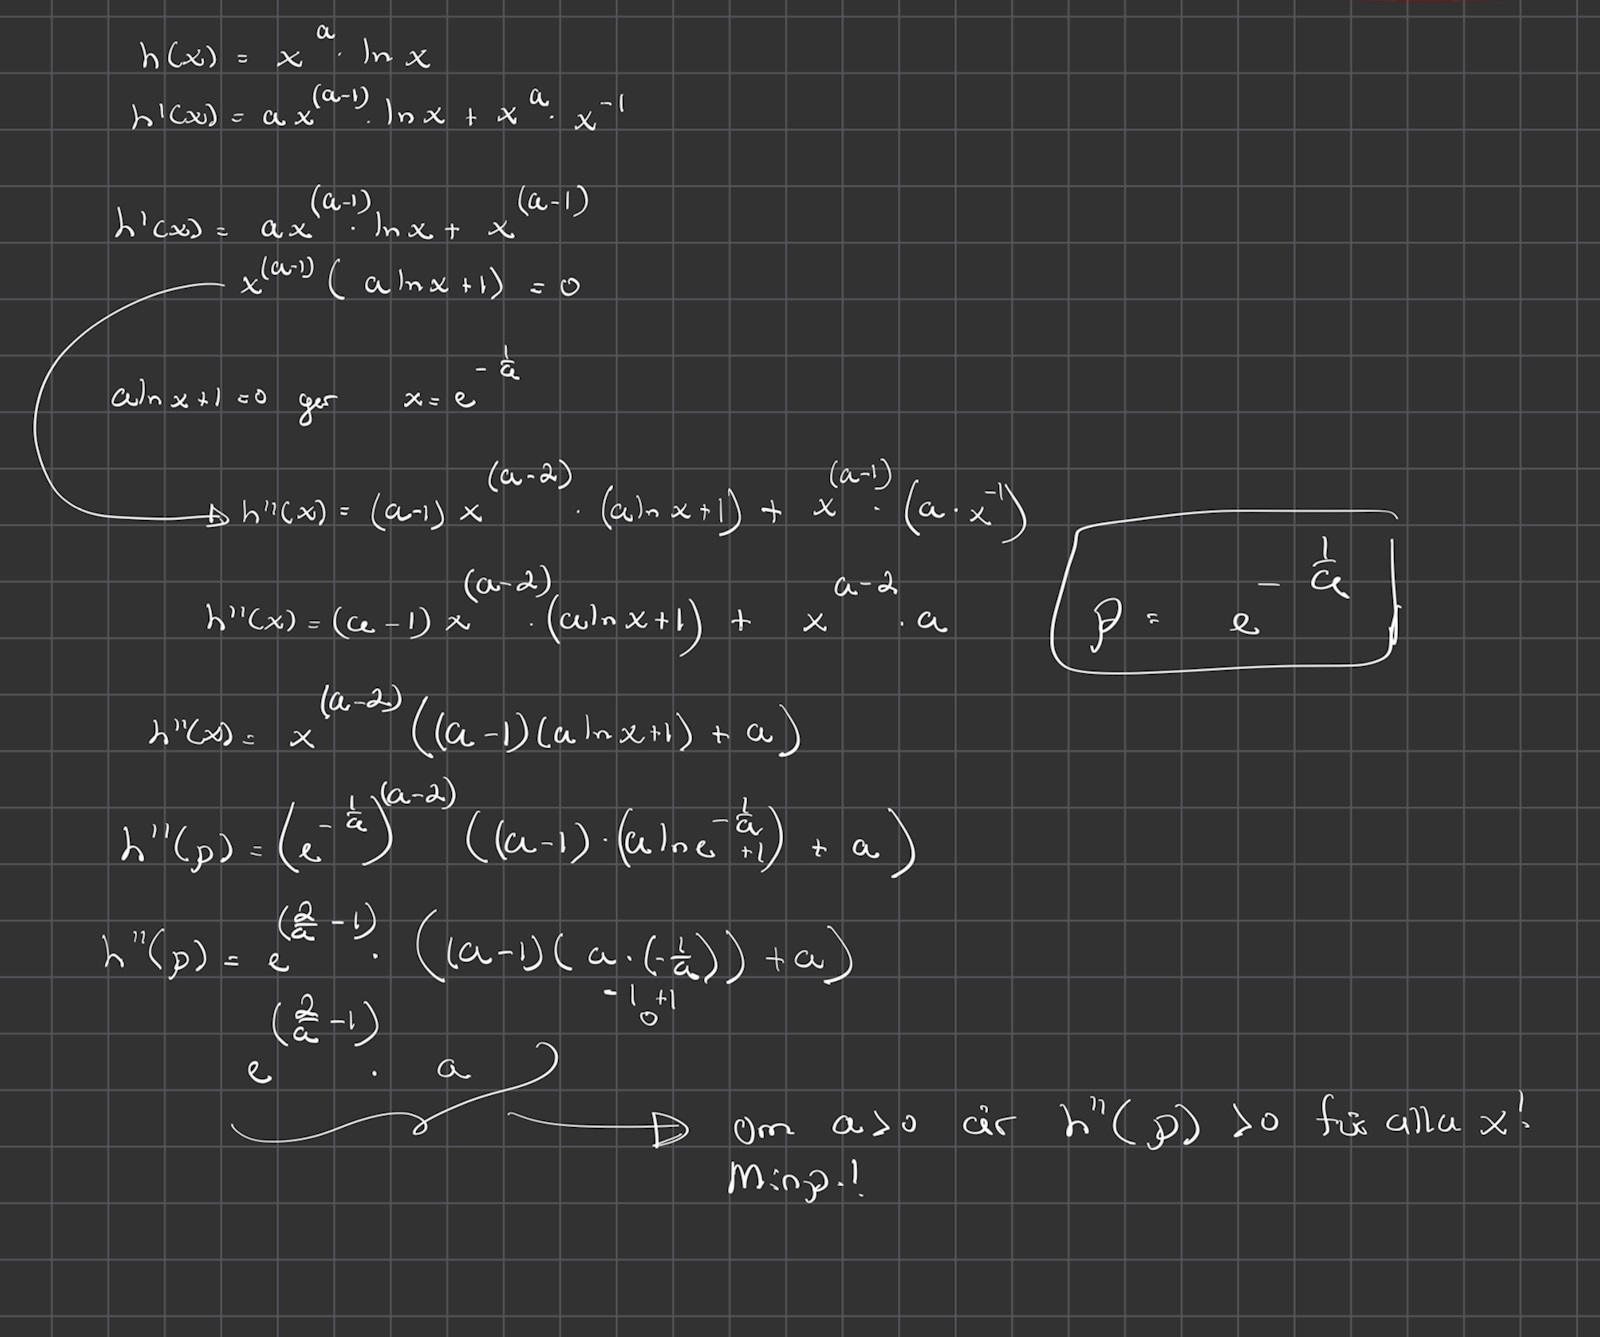 h(x) = x^a · ln x
h'(x) = a x^(a-1) · ln x + x^a · x^-1
h'(x) = a x^(a-1) · ln x + x^(a-1)
x^(a-1) ( a ln x + 1) = 0
a ln x + 1 = 0 ger x = e^(-1/a)
h''(x) = (a-1) x^(a-2) · (a ln x + 1) + x^(a-1) · (a · x^-1)
h''(x) = (a-1) x^(a-2) · (a ln x + 1) + x^(a-2) · a
p = e^(-1/a)
h''(x) = x^(a-2) ((a-1)(a ln x + 1) + a)
h''(p) = (e^(-1/a))^(a-2) ((a-1) · (a ln e^(-1/a) +1) + a)
h''(p) = e^(2/a - 1) · ((a-1)( a · (-1/a)) + a)
-1 +1
0
e^(2/a - 1) · a
Om a>0 är h''(p) >0 för alla x!
Minp.!